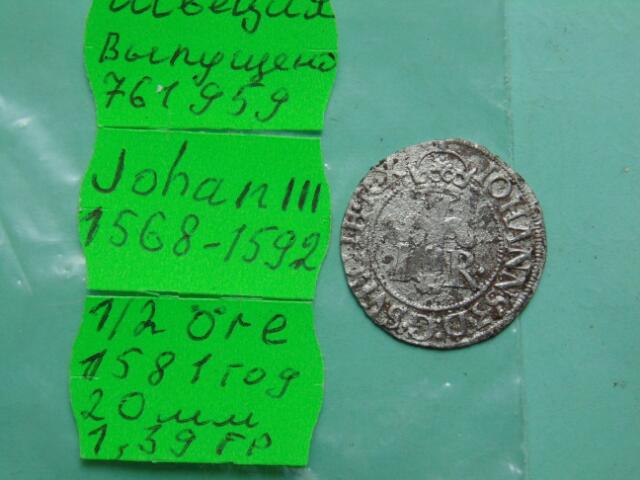 Швеция
Выпущено
761959
Johan III
1568-1592
1/2 öre
1581 год
20 мм
1,39 гр
IOHANNS 3 D G SV
R